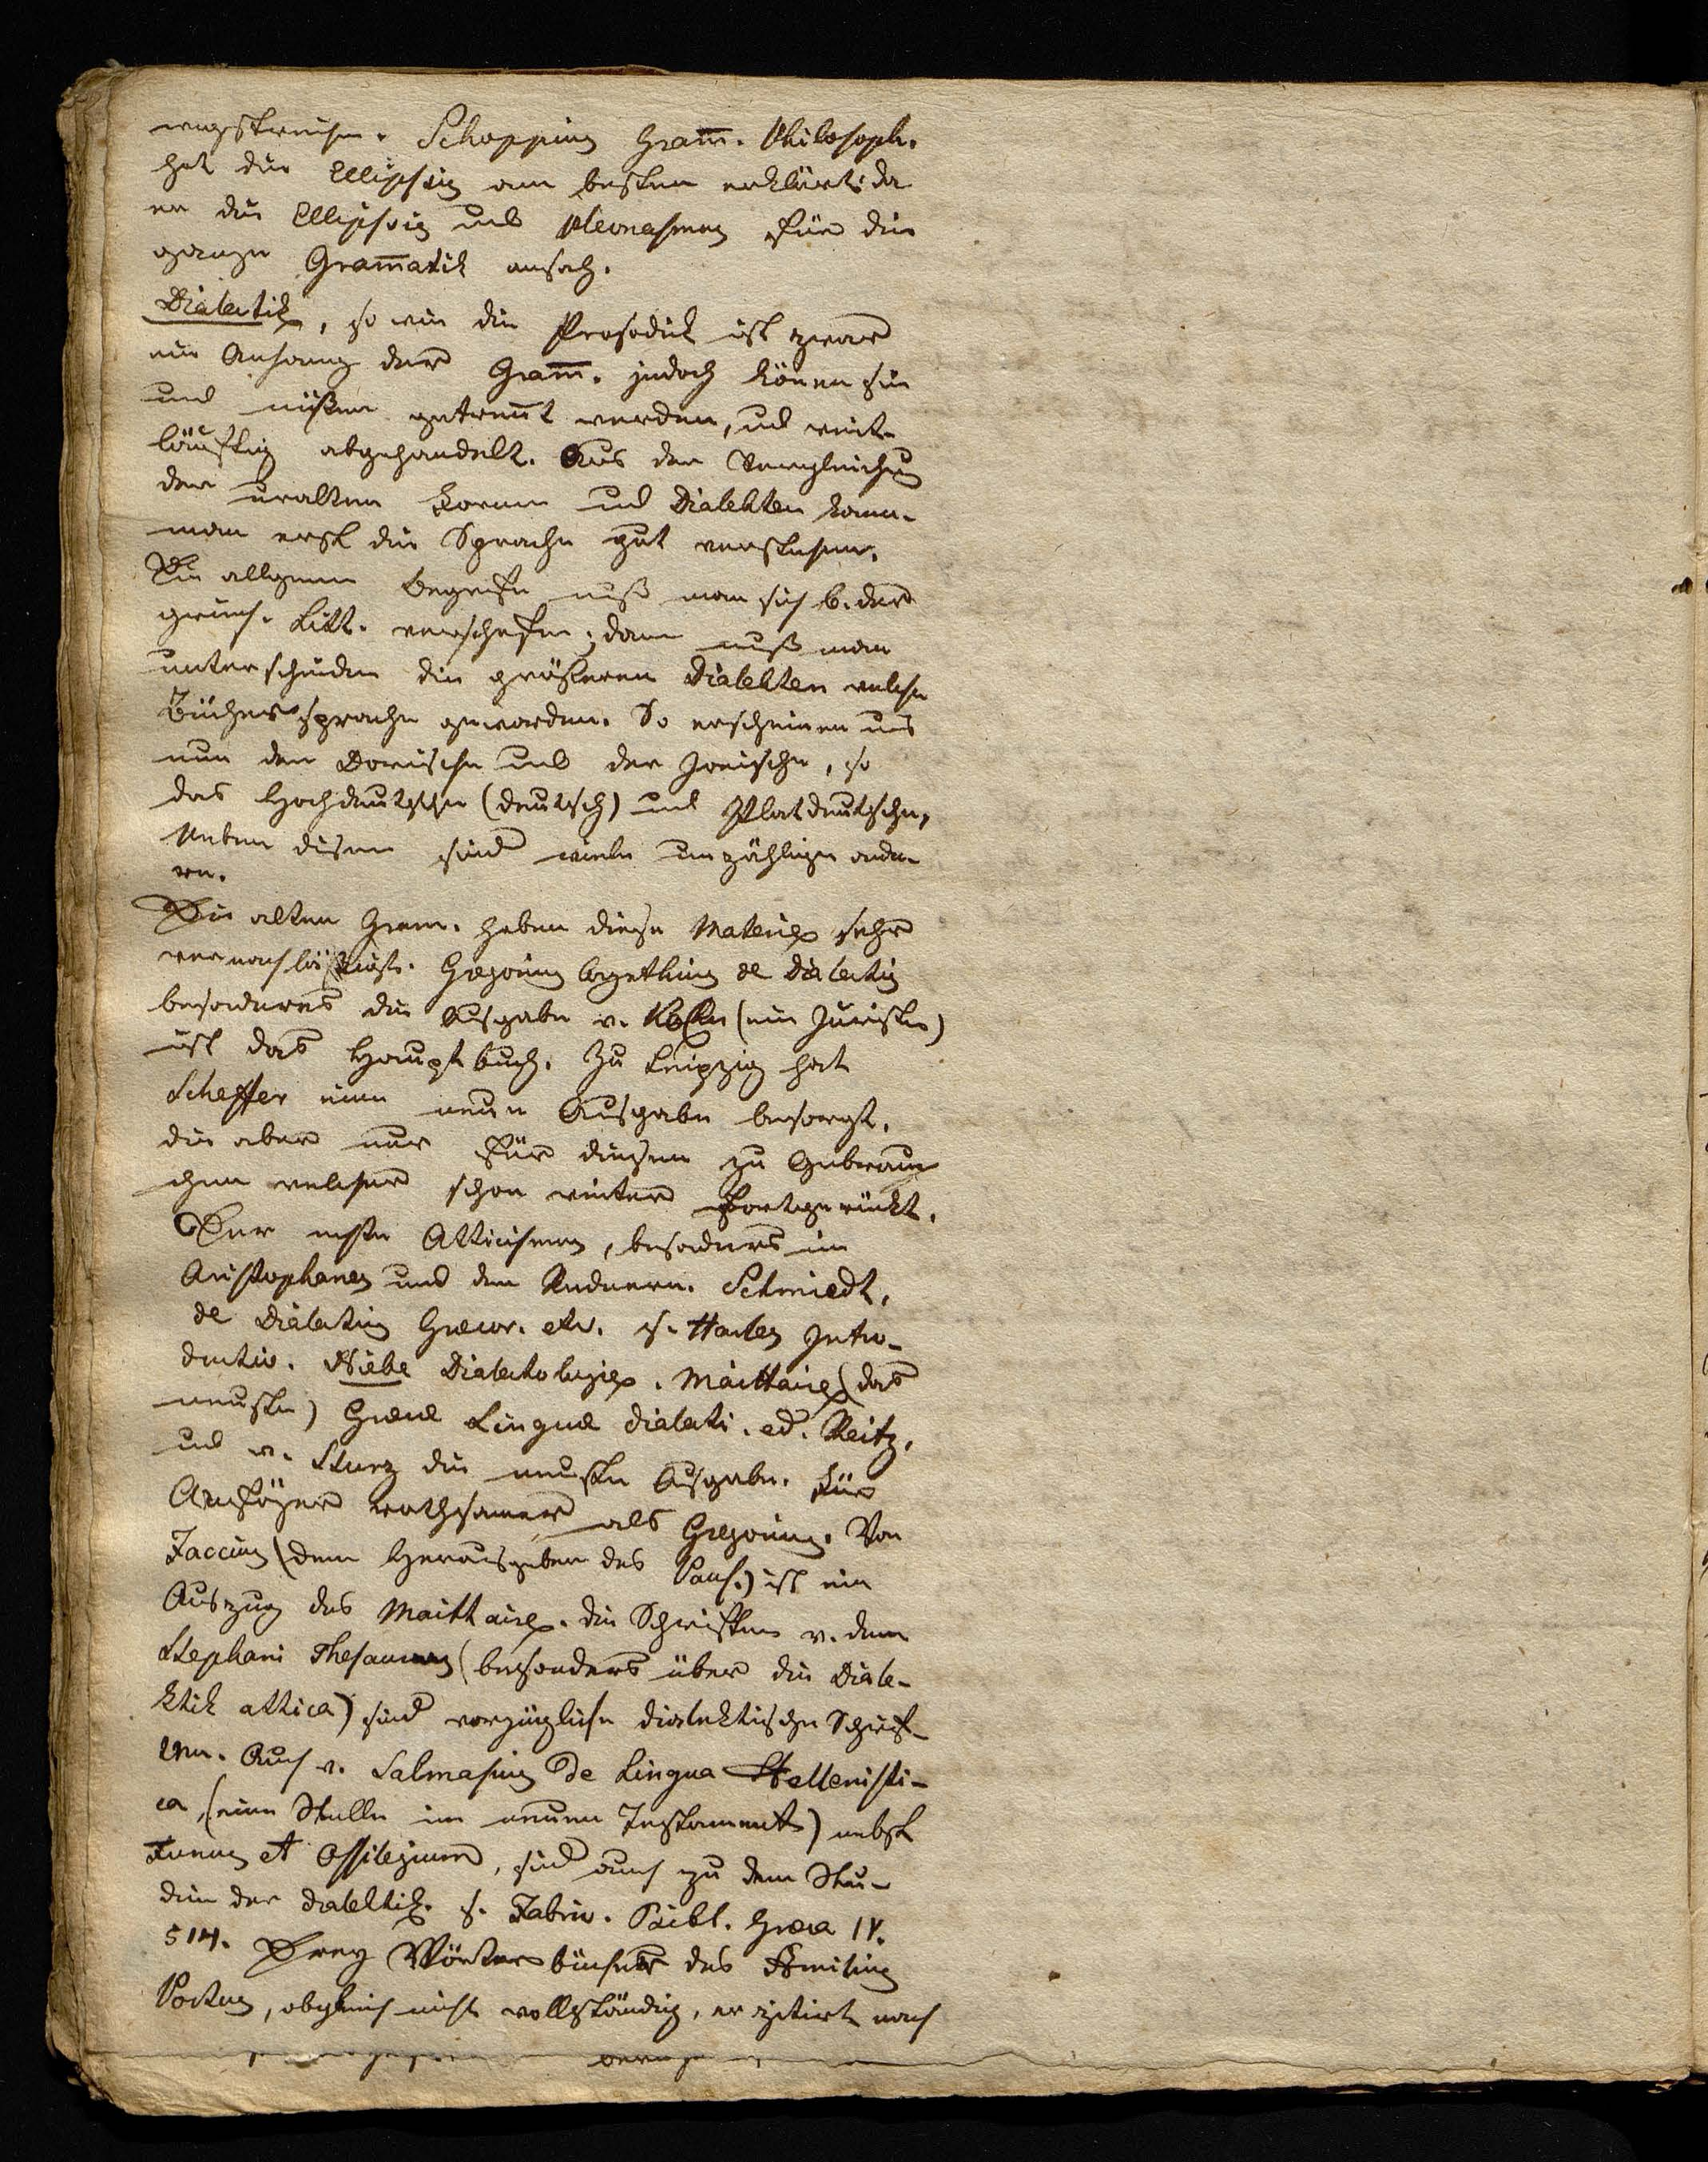 wegstreichen. Schoppius Gram̅. Philosoph.
hat die Ellipsis am besten erklärt: da
er die Ellipsis und Pleonasmus für die
ganze Gram̅atik ansah.
Dialectik, so wie die Prosodik ist zwar
ein Anhang der Gram̅. jedoch könen sie
und müßen getren̅t werden, und weit-
läuftig abgehandelt. Aus der Vergleichung
der uralten Formen und Dialekten kann
man erst die Sprache gut verstehen.
Die allgemein Begriffe muß man sich b. der
griech. Litt. verschaffen; dann muß man
unterscheiden die größeren Dialekten welche
Büchersprache geworden. So erscheinen uns
nun der Dorische und der Jonische, so
das Hochdeutsche (deutsch) und Platdeutsche,
Neben disen sind viele unzählige ande-
re.
Die alten Gram. haben diese Materie sehr
vernachläßigt. Gregorius de Dialectis
besonders die Ausgabe v. Koen (ein Juriste)
ist das Hauptbuch. Zu Leipzig hat
Scheffer eine neue Ausgabe besorgt,
die aber nur für diejen zu Gebrau-
chen welcher schon weiter fortgerückt.
Der erste Atticismus, besonders im
Aristophanes und den Rednern. Schmiedt,
de Dialectis Graecor. etc. s. Harles Intro-
ductio. Niebe Dialectologie. Maittaire (das
neuste) Graecae Linguae dialecti. ed. Reitz,
und v. Sturz die neuste Ausgabe. Für
Anfäger rathsamer als Gregorius. Von
Faccius (dem Herausgeber des Paus.) ist ein
Auszug des Maittaire. die Schriften v. dem
Stephani Thesaurus (besonders über die Diale-
ktik attica) sind vorzügliche dialektische Schrif-
ten. Auch v. Salmasius De Lingua Hellenisti-
ca, (eine Stelle im neuen Testament) nebst
Funus et Ossilegium, sind auch zu dem Stu-
dim der Dialektik. s. Fabric. Bibl. Graeca IV.
514. Drey Wörterbücher des Aemilius
Portus, obgleich nicht vollständig, er zitirt nach